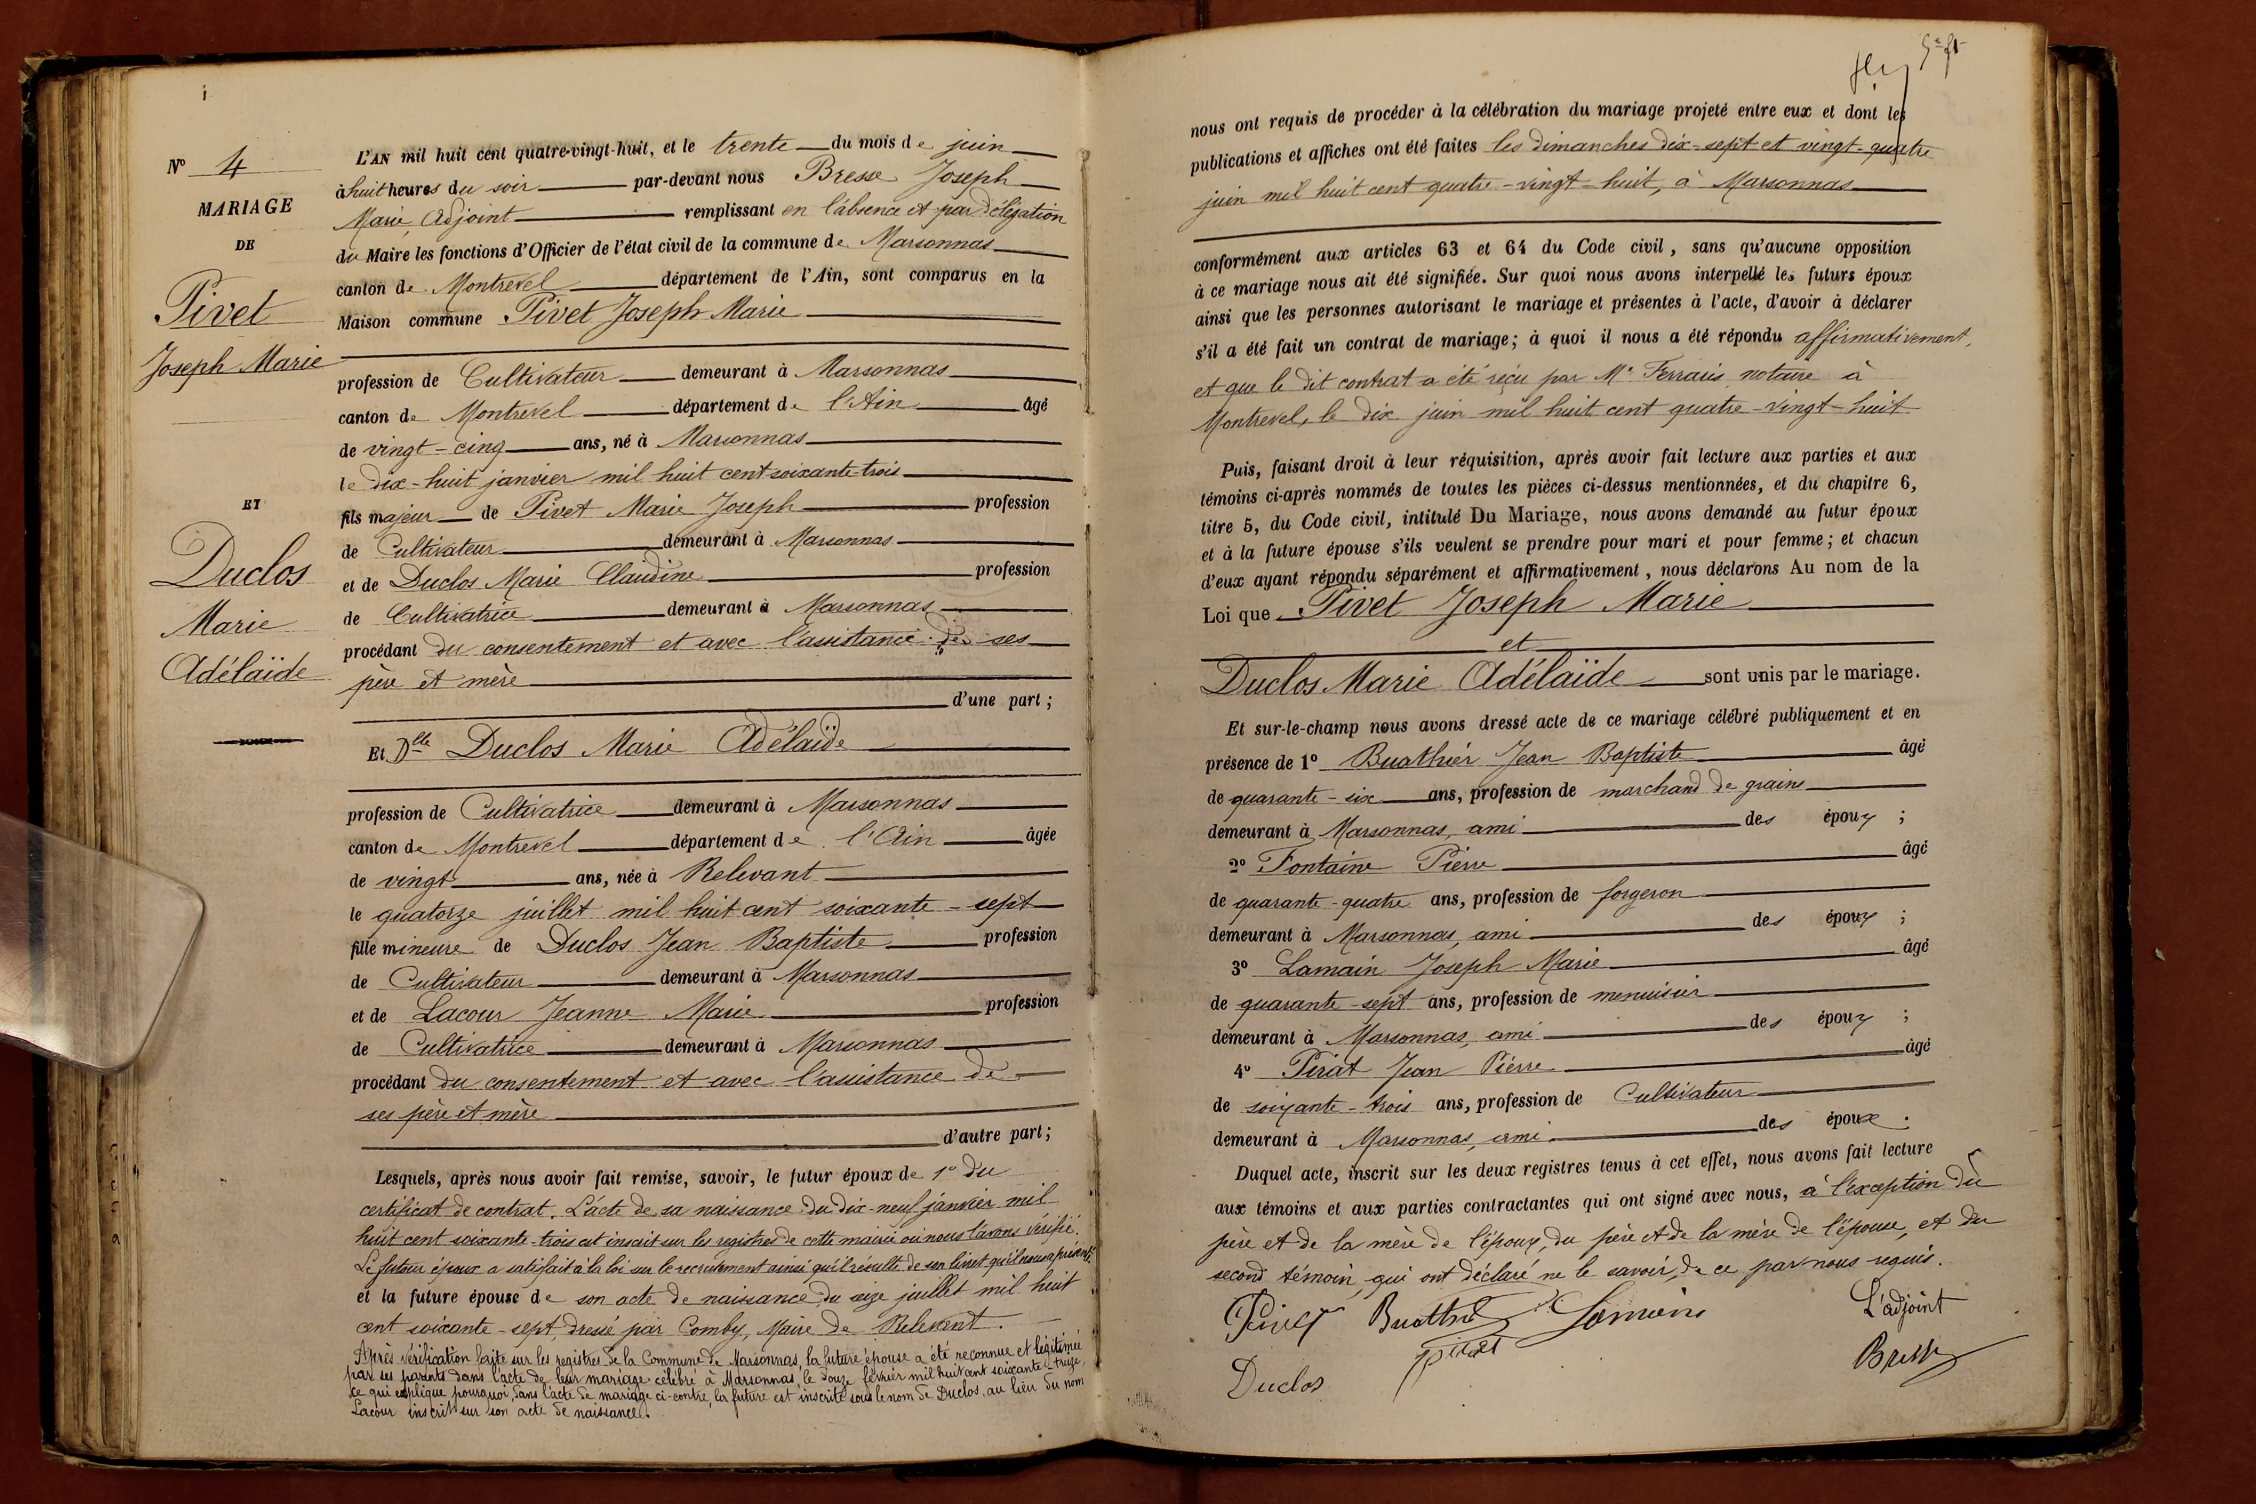 N° 4
MARIAGE
DE
Pivet
Joseph Marie
ET
Duclos
Marie
Adélaïde
L'AN mil huit cent quatre-vingt-huit, et le trente du mois de juin
à huit heures du soir par-devant nous Bresse Joseph
Marie, Adjoint remplissant en l'absence et par délégation
du Maire les fonctions d'Officier de l'état civil de la commune de Marsonnas
canton de Montrevel département de l'Ain, sont comparus en la
Maison commune Pivet Joseph Marie
profession de Cultivateur demeurant à Marsonnas
canton de Montrevel département de l'Ain âgé
de vingt-cinq ans, né à Marsonnas
le dix-huit janvier mil huit cent soixante-trois
fils majeur de Pivet Marie Joseph profession
de Cultivateur demeurant à Marsonnas
et de Duclos Marie Claudine profession
de Cultivatrice demeurant à Marsonnas
procédant du consentement et avec l'assistance de ses
père et mère
d'une part ;
Et Dlle Duclos Marie Adélaïde
profession de Cultivatrice demeurant à Marsonnas
canton de Montrevel département de l'Ain âgée
de vingt ans, née à Relevant
le quatorze juillet mil huit cent soixante-sept
fille mineure de Duclos Jean Baptiste profession
de Cultivateur demeurant à Marsonnas
et de Lacour Jeanne Marie profession
de Cultivatrice demeurant à Marsonnas
procédant du consentement et avec l'assistance de
ses père et mère
d'autre part ;
Lesquels, après nous avoir fait remise, savoir, le futur époux de 1° du
certificat de contrat. L'acte de sa naissance du dix-neuf janvier mil
huit cent soixante-trois est inscrit sur les registres de cette mairie où nous l'avons vérifié.
Le futur époux a satisfait à la loi sur le recrutement ainsi qu'il résulte de son livret qu'il nous a présenté.
et la future épouse de son acte de naissance du seize juillet mil huit
cent soixante-sept, dressé par Comby, Maire de Relevant.
Après vérification faite sur les registres de la Commune de Marsonnas, la future épouse a été reconnue et légitimée
par ses parents dans l'acte de leur mariage célébré à Marsonnas, le douze février mil huit cent soixante-treize,
ce qui explique pourquoi, dans l'acte de mariage ci-contre, la future est inscrite sous le nom de Duclos, au lieu du nom
Lacour inscrit sur son acte de naissance.
nous ont requis de procéder à la célébration du mariage projeté entre eux et dont les
publications et affiches ont été faites les dimanches dix-sept et vingt-quatre
juin mil huit cent quatre-vingt-huit, à Marsonnas
conformément aux articles 63 et 64 du Code civil, sans qu'aucune opposition
à ce mariage nous ait été signifiée. Sur quoi nous avons interpellé les futurs époux
ainsi que les personnes autorisant le mariage et présentes à l'acte, d'avoir à déclarer
s'il a été fait un contrat de mariage; à quoi il nous a été répondu affirmativement,
et que le dit contrat a été reçu par Me Ferraris, notaire à
Montrevel, le dix juin mil huit cent quatre-vingt-huit
Puis, faisant droit à leur réquisition, après avoir fait lecture aux parties et aux
témoins ci-après nommés de toutes les pièces ci-dessus mentionnées, et du chapitre 6,
titre 5, du Code civil, intitulé Du Mariage, nous avons demandé au futur époux
et à la future épouse s'ils veulent se prendre pour mari et pour femme; et chacun
d'eux ayant répondu séparément et affirmativement, nous déclarons Au nom de la
Loi que Pivet Joseph Marie
et
Duclos Marie Adélaïde sont unis par le mariage.
Et sur-le-champ nous avons dressé acte de ce mariage célébré publiquement et en
présence de 1° Buathier Jean Baptiste âgé
de quarante-six ans, profession de marchand de grains
demeurant à Marsonnas, ami des époux ;
2° Fontaine Pierre âgé
de quarante-quatre ans, profession de forgeron
demeurant à Marsonnas, ami des époux ;
3° Lamain Joseph Marie âgé
de quarante-sept ans, profession de menuisier
demeurant à Marsonnas, ami des époux ;
4° Pirat Jean Pierre âgé
de soixante-trois ans, profession de Cultivateur
demeurant à Marsonnas, ami des époux.
Duquel acte, inscrit sur les deux registres tenus à cet effet, nous avons fait lecture
aux témoins et aux parties contractantes qui ont signé avec nous, à l'exception du
père et de la mère de l'époux, du père et de la mère de l'épouse, et du
second témoin, qui ont déclaré ne le savoir, de ce par nous requis.
Pivet Lamain L'adjoint
Duclos Bresse